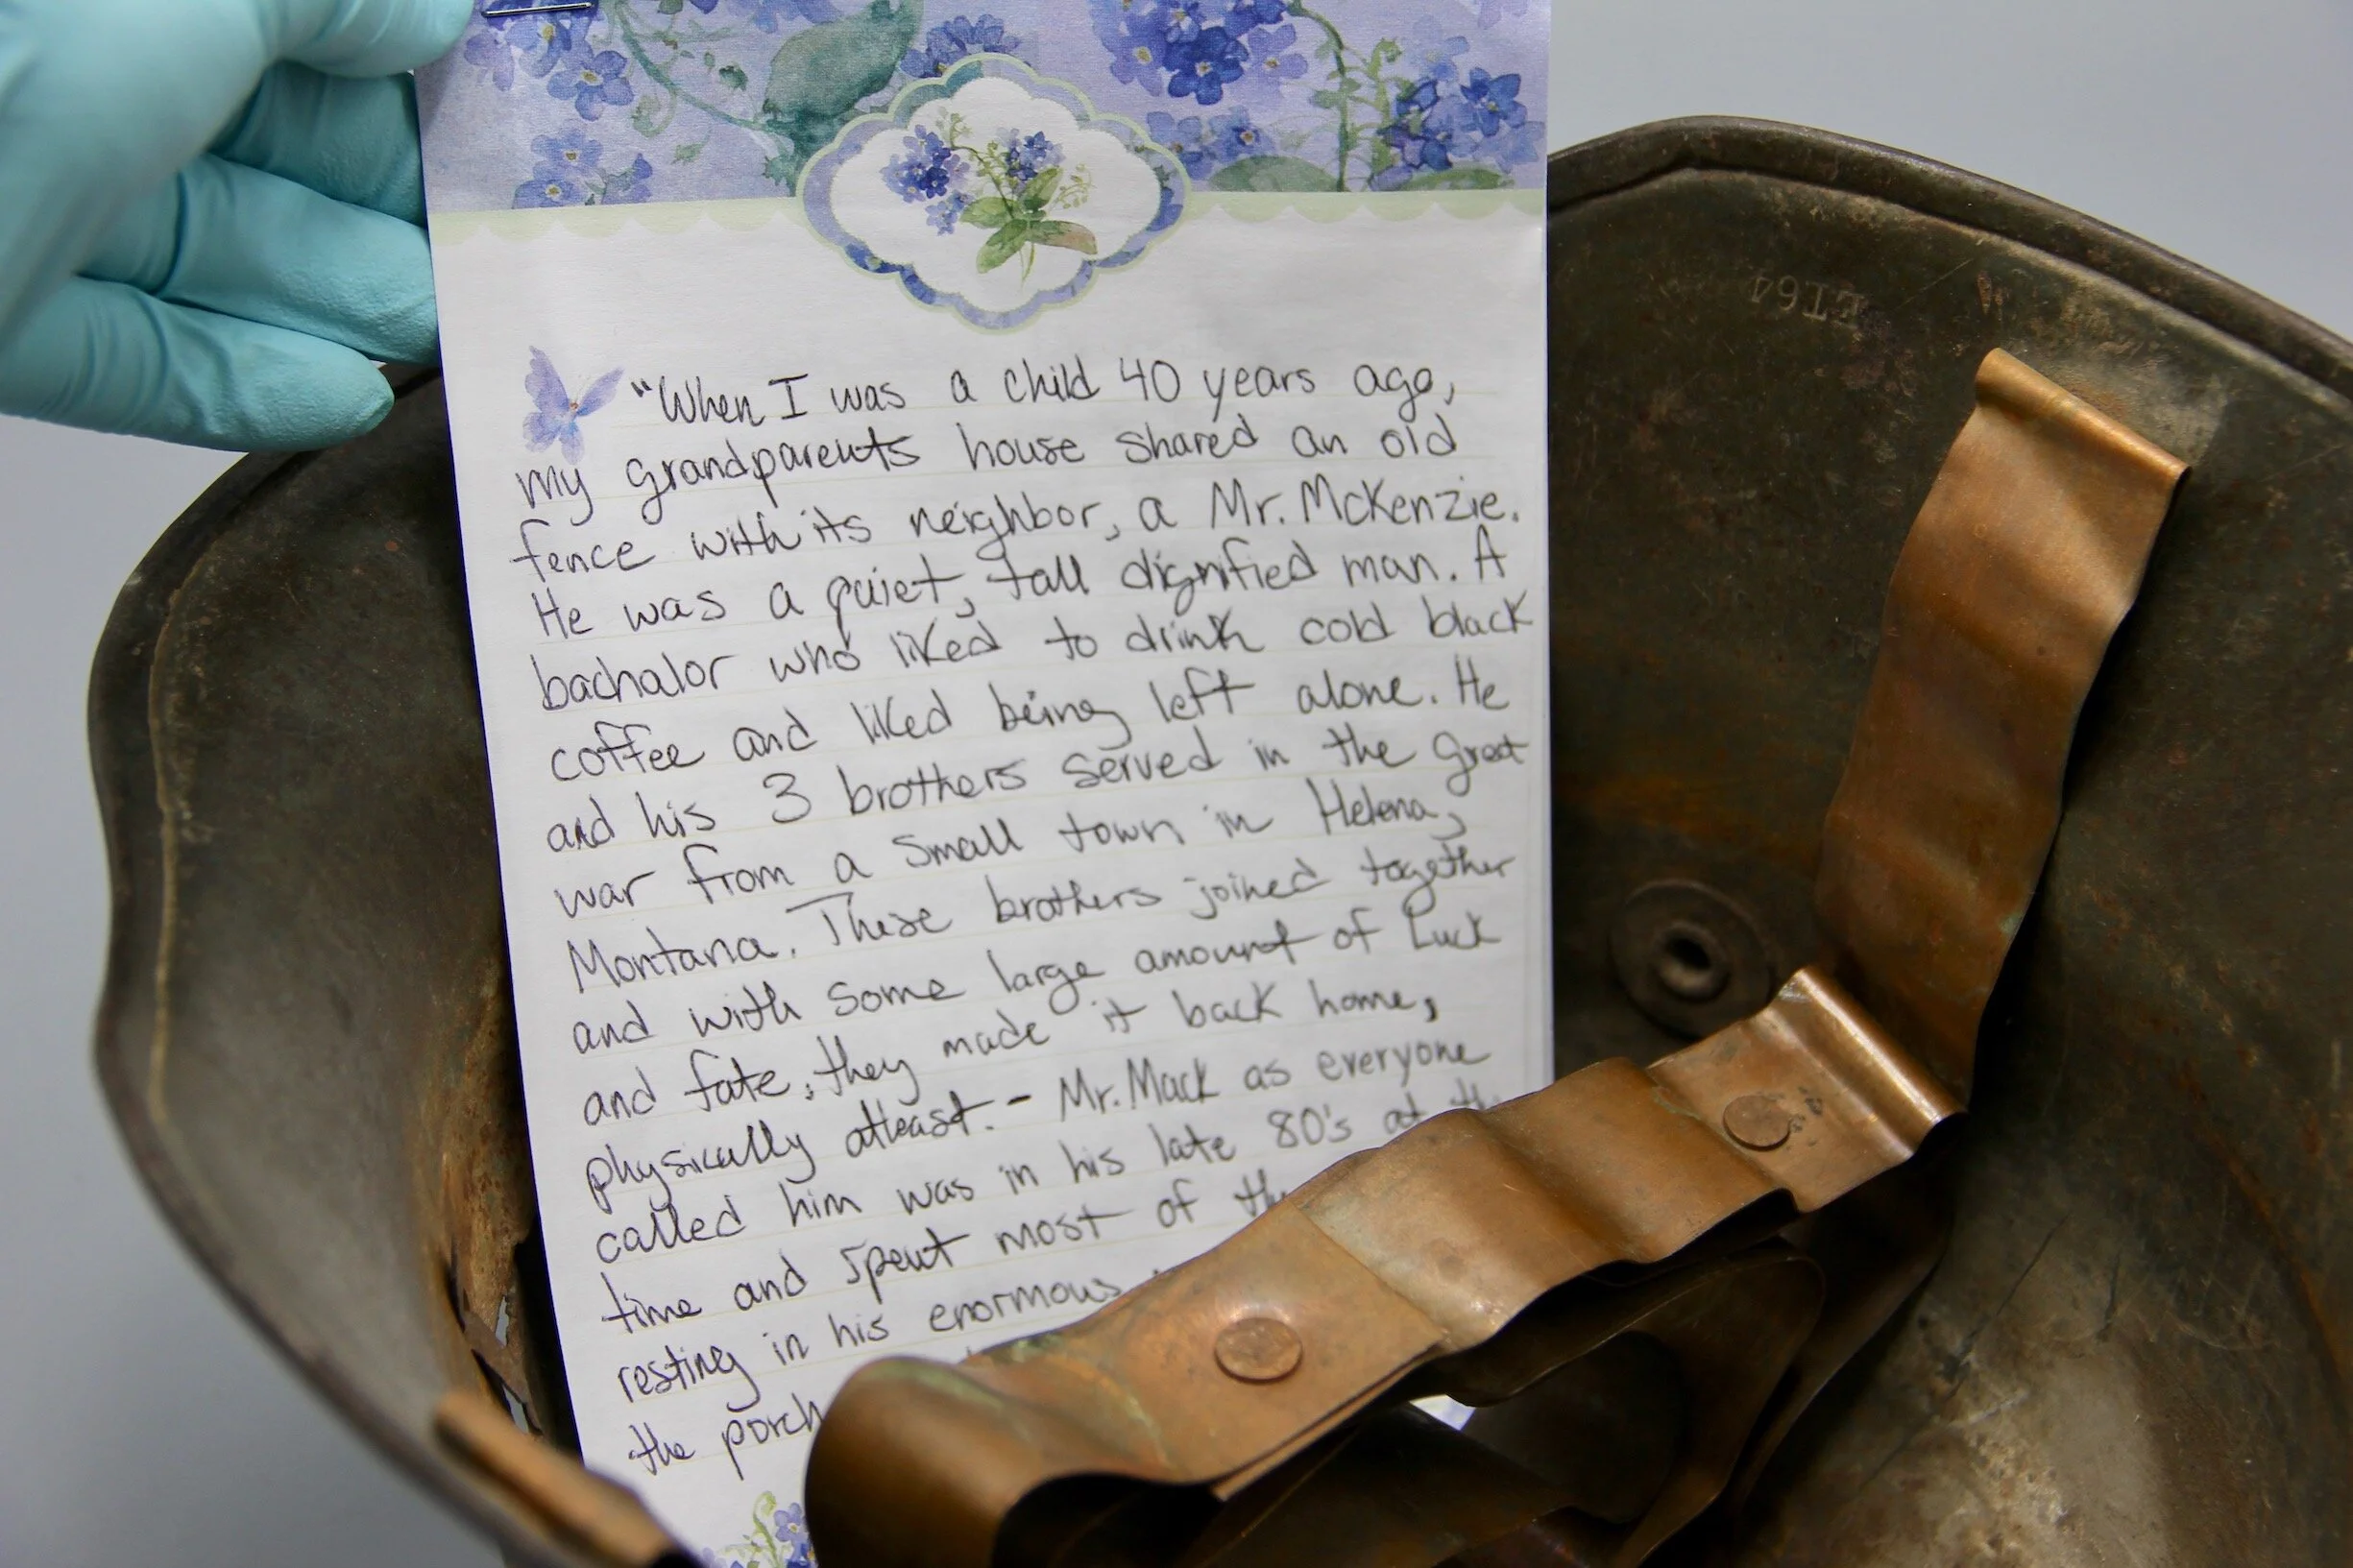 "When I was a child 40 years ago,
my grandparents house shared an old
fence with its neighbor, a Mr. McKenzie.
He was a quiet, tall dignified man. A
bachalor who liked to drink cold black
coffee and liked being left alone. He
and his 3 brothers served in the great
war from a small town in Helena,
Montana. These brothers joined together
and with some large amount of Luck
and fate, they made it back home,
physically atleast. - Mr. Mack as everyone
called him was in his late 80's at
time and spent most of
resting in his enormous
the porch
ET64